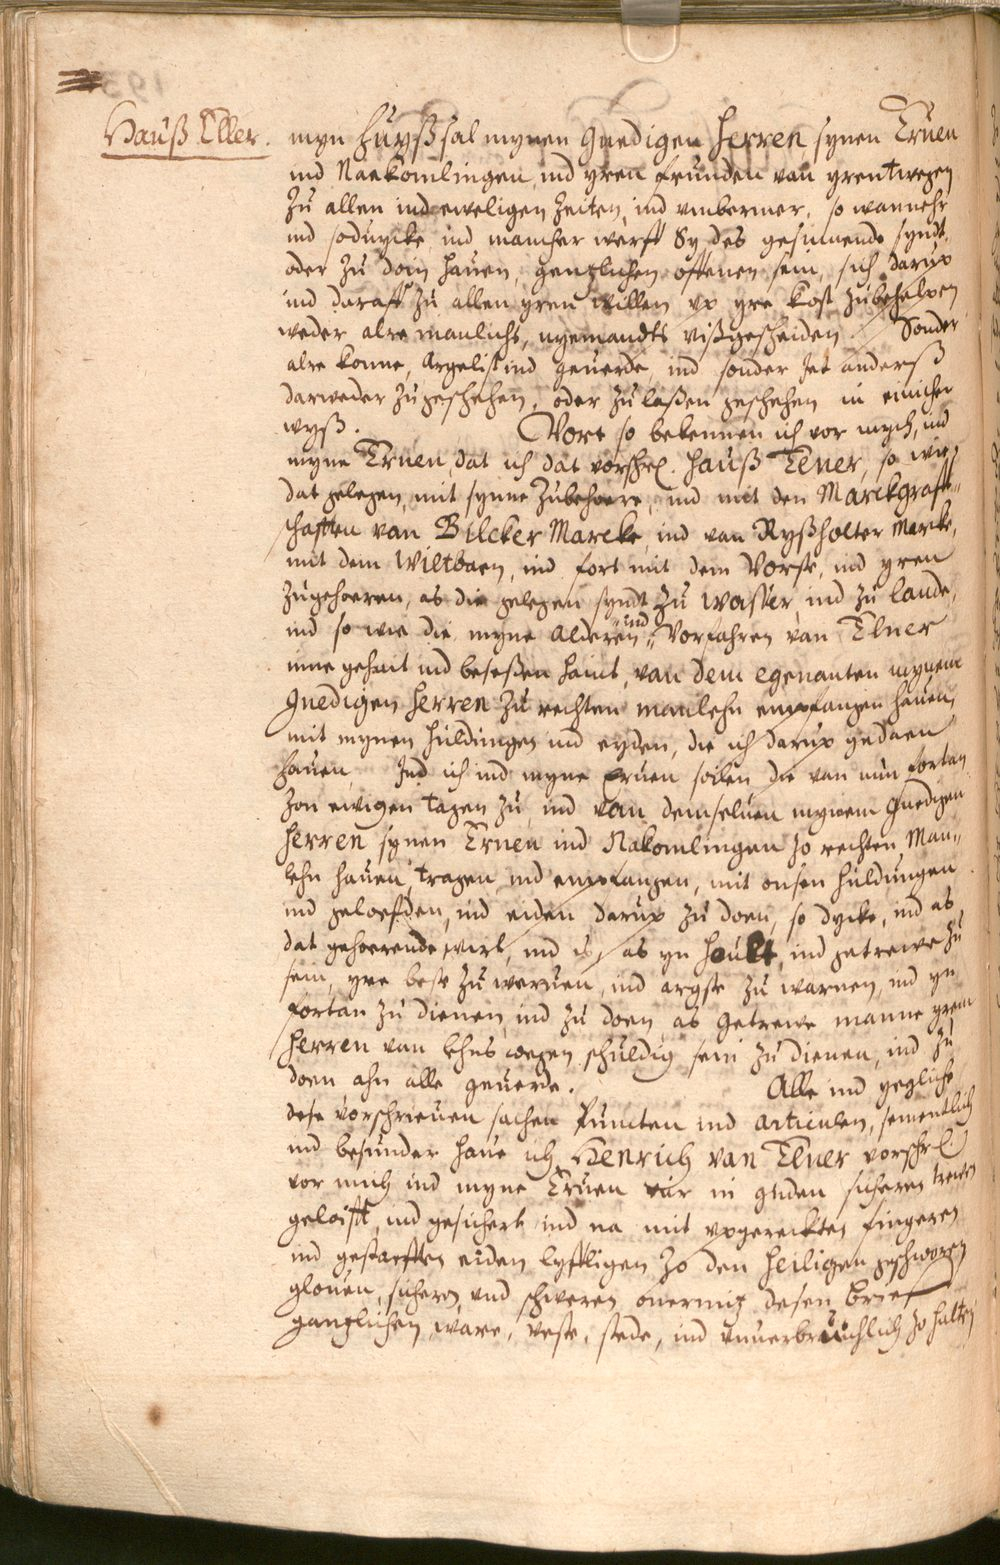 Hauß Eller.
myn Huyß sal mynen gnedigen Herren, synen Eruen
ind Naekomlingen, ind yren frunden van yrentwegen
zu allen ind eweligen zeiten, ind vmbermer, so wannehr
ind so dycke, ind mancher werff Sy des gesinnende syndt
oder zu doin hauen, gentzlichen offenen sein, sich darup
ind daraff zu allen yren willen vp yre kost zubehelpen
weder alre manlichs, nyemandts vißgescheiden. Sonder
alre konne, Argelist ind geuerde, ind sonder Jet anderß
darweder zugeschehen, oder zulaßen geschehen in einicher
wyß. Vort so bekennen ich vor mych, ind
myne Eruen, dat ich dat vorschr. Hauß Elner, so wie
dat gelegen, mit synne Zubehoere, ind mit den Marckgraff-
schafften van Bilcker Marcke, ind van Ryßholter Marcke,
mit dem Wiltbaen, ind fort mit dem Vorste, ind yren
zugehoeren, as die gelegen syndt zu waßer ind zu lande,
ind so wie die myne Alderen ind Vorfahren van Elner
inne gehait ind beseßen haint, van dem egenanten mynem
gnedigen Herren zu rechten manlehn empfangen hauen,
mit mynen huldingen ind eyden, die ich darup gedaen
hauen, Ind ich ind myne Eruen soilen die van nun fortan
zon ewigen tagen zu, ind van demseluen mynem gnedigen
Herren synen Eruen ind Nakomlingen zo rechten Man-
lehn hauen, tragen ind empfangen, mit onsen huldungen
ind geloefden, ind eiden darup zu doen, so dycke, ind as
dat gehoerende wirt, ind is, as yn hoult, ind getrewe zu
sein, yre beste zu weruen, ind argste zu warnen, ind yn
fortan zu dienen, ind zu doen, as getrewe manne yrem
Herren van lehns wegen schuldig sein zu dienen, ind zu
doen ahn alle geuerde. Alle ind yegliche
dese vorschrieuen sachen Puncten ind articulen, sementlich
ind besunder haue ich Henrich van Elner vorschr.
vor mich ind myne Eruen var in guden sicheren trewen
geloifft, ind gesichert, ind na mit vpgereckten fingeren
ind gestaefften eiden lyfftligen zo den Heiligen geschworen
glouen, sicheren, vnd schweren ouermitz desen brief
gantzlichen, ware, veste, stede, ind vnuerbruchlich zo halten